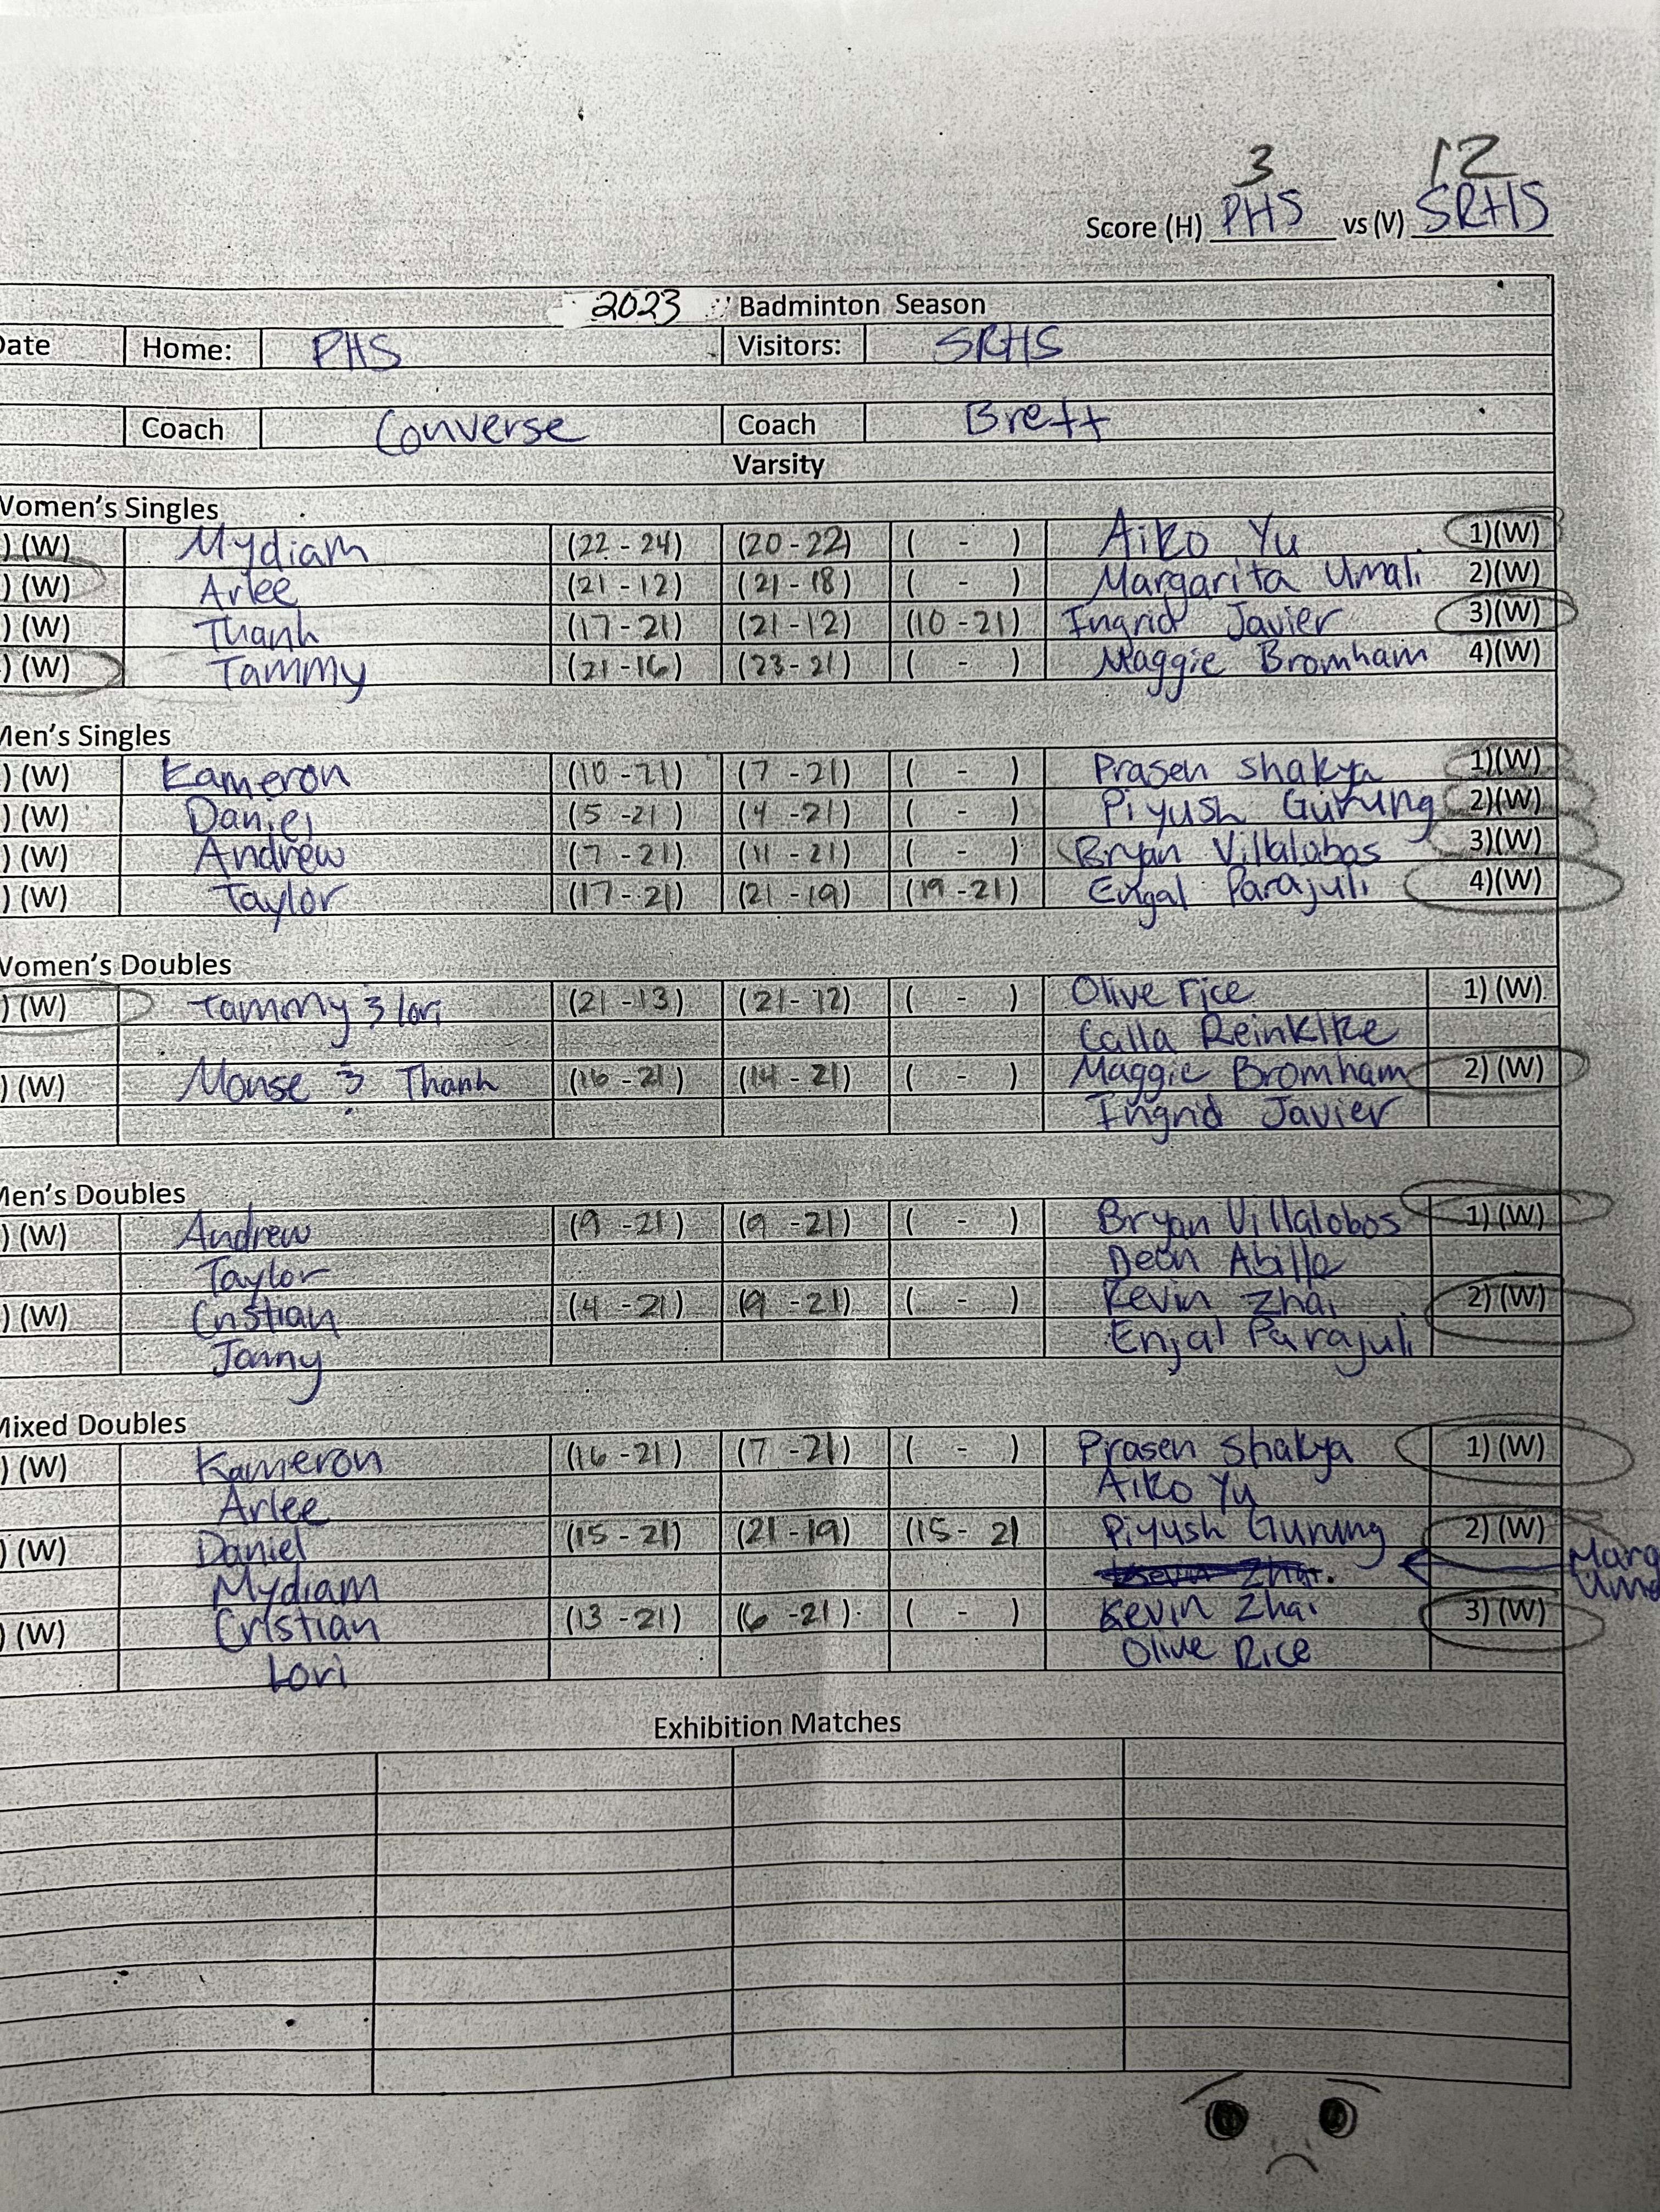 3 12
Score (H) PHS vs (V) SRHS
2023 Badminton Season
Date Home: PHS Visitors: SRHS
Coach Converse Coach Brett
Varsity
Women's Singles
) (W) Mydiam (22 - 24) (20 - 22) ( - ) Aiko Yu 1)(W)
) (W) Arlee (21 - 12) (21 - 18) ( - ) Margarita Umali 2)(W)
) (W) Thanh (17 - 21) (21 - 12) (10 - 21) Ingrid Javier 3)(W)
) (W) Tammy (21 - 16) (23 - 21) ( - ) Maggie Bromham 4)(W)
Men's Singles
) (W) Kameron (10 - 21) (7 - 21) ( - ) Prasen Shakya 1)(W)
) (W) Daniel (5 - 21) (4 - 21) ( - ) Piyush Gurung 2)(W)
) (W) Andrew (7 - 21) (11 - 21) ( - ) Bryan Villalobos 3)(W)
) (W) Taylor (17 - 21) (21 - 19) (19 - 21) Parajuli 4)(W)
Women's Doubles
) (W) Tammy & Lori (21 - 13) (21 - 12) ( - ) Olive rice 1) (W)
Calla
) (W) Monse & Thanh (16 - 21) (14 - 21) ( - ) Maggie Bromham 2) (W)
Ingrid Javier
Men's Doubles
) (W) Andrew (9 - 21) (9 - 21) ( - ) Bryan Villalobos 1) (W)
Taylor Dean Abille
) (W) Cristian (4 - 21) (9 - 21) ( - ) Kevin Zhai 2) (W)
Jonny Enjal Parajuli
Mixed Doubles
) (W) Kameron (16 - 21) (7 - 21) ( - ) Prasen Shakya 1) (W)
Arlee Aiko Yu
) (W) Daniel (15 - 21) (21 - 19) (15 - 21 Piyush Gurung 2) (W)
Mydiam Marg
Uma
) (W) Cristian (13 - 21) (6 - 21) ( - ) Kevin Zhai 3) (W)
Lori Olive Rice
Exhibition Matches